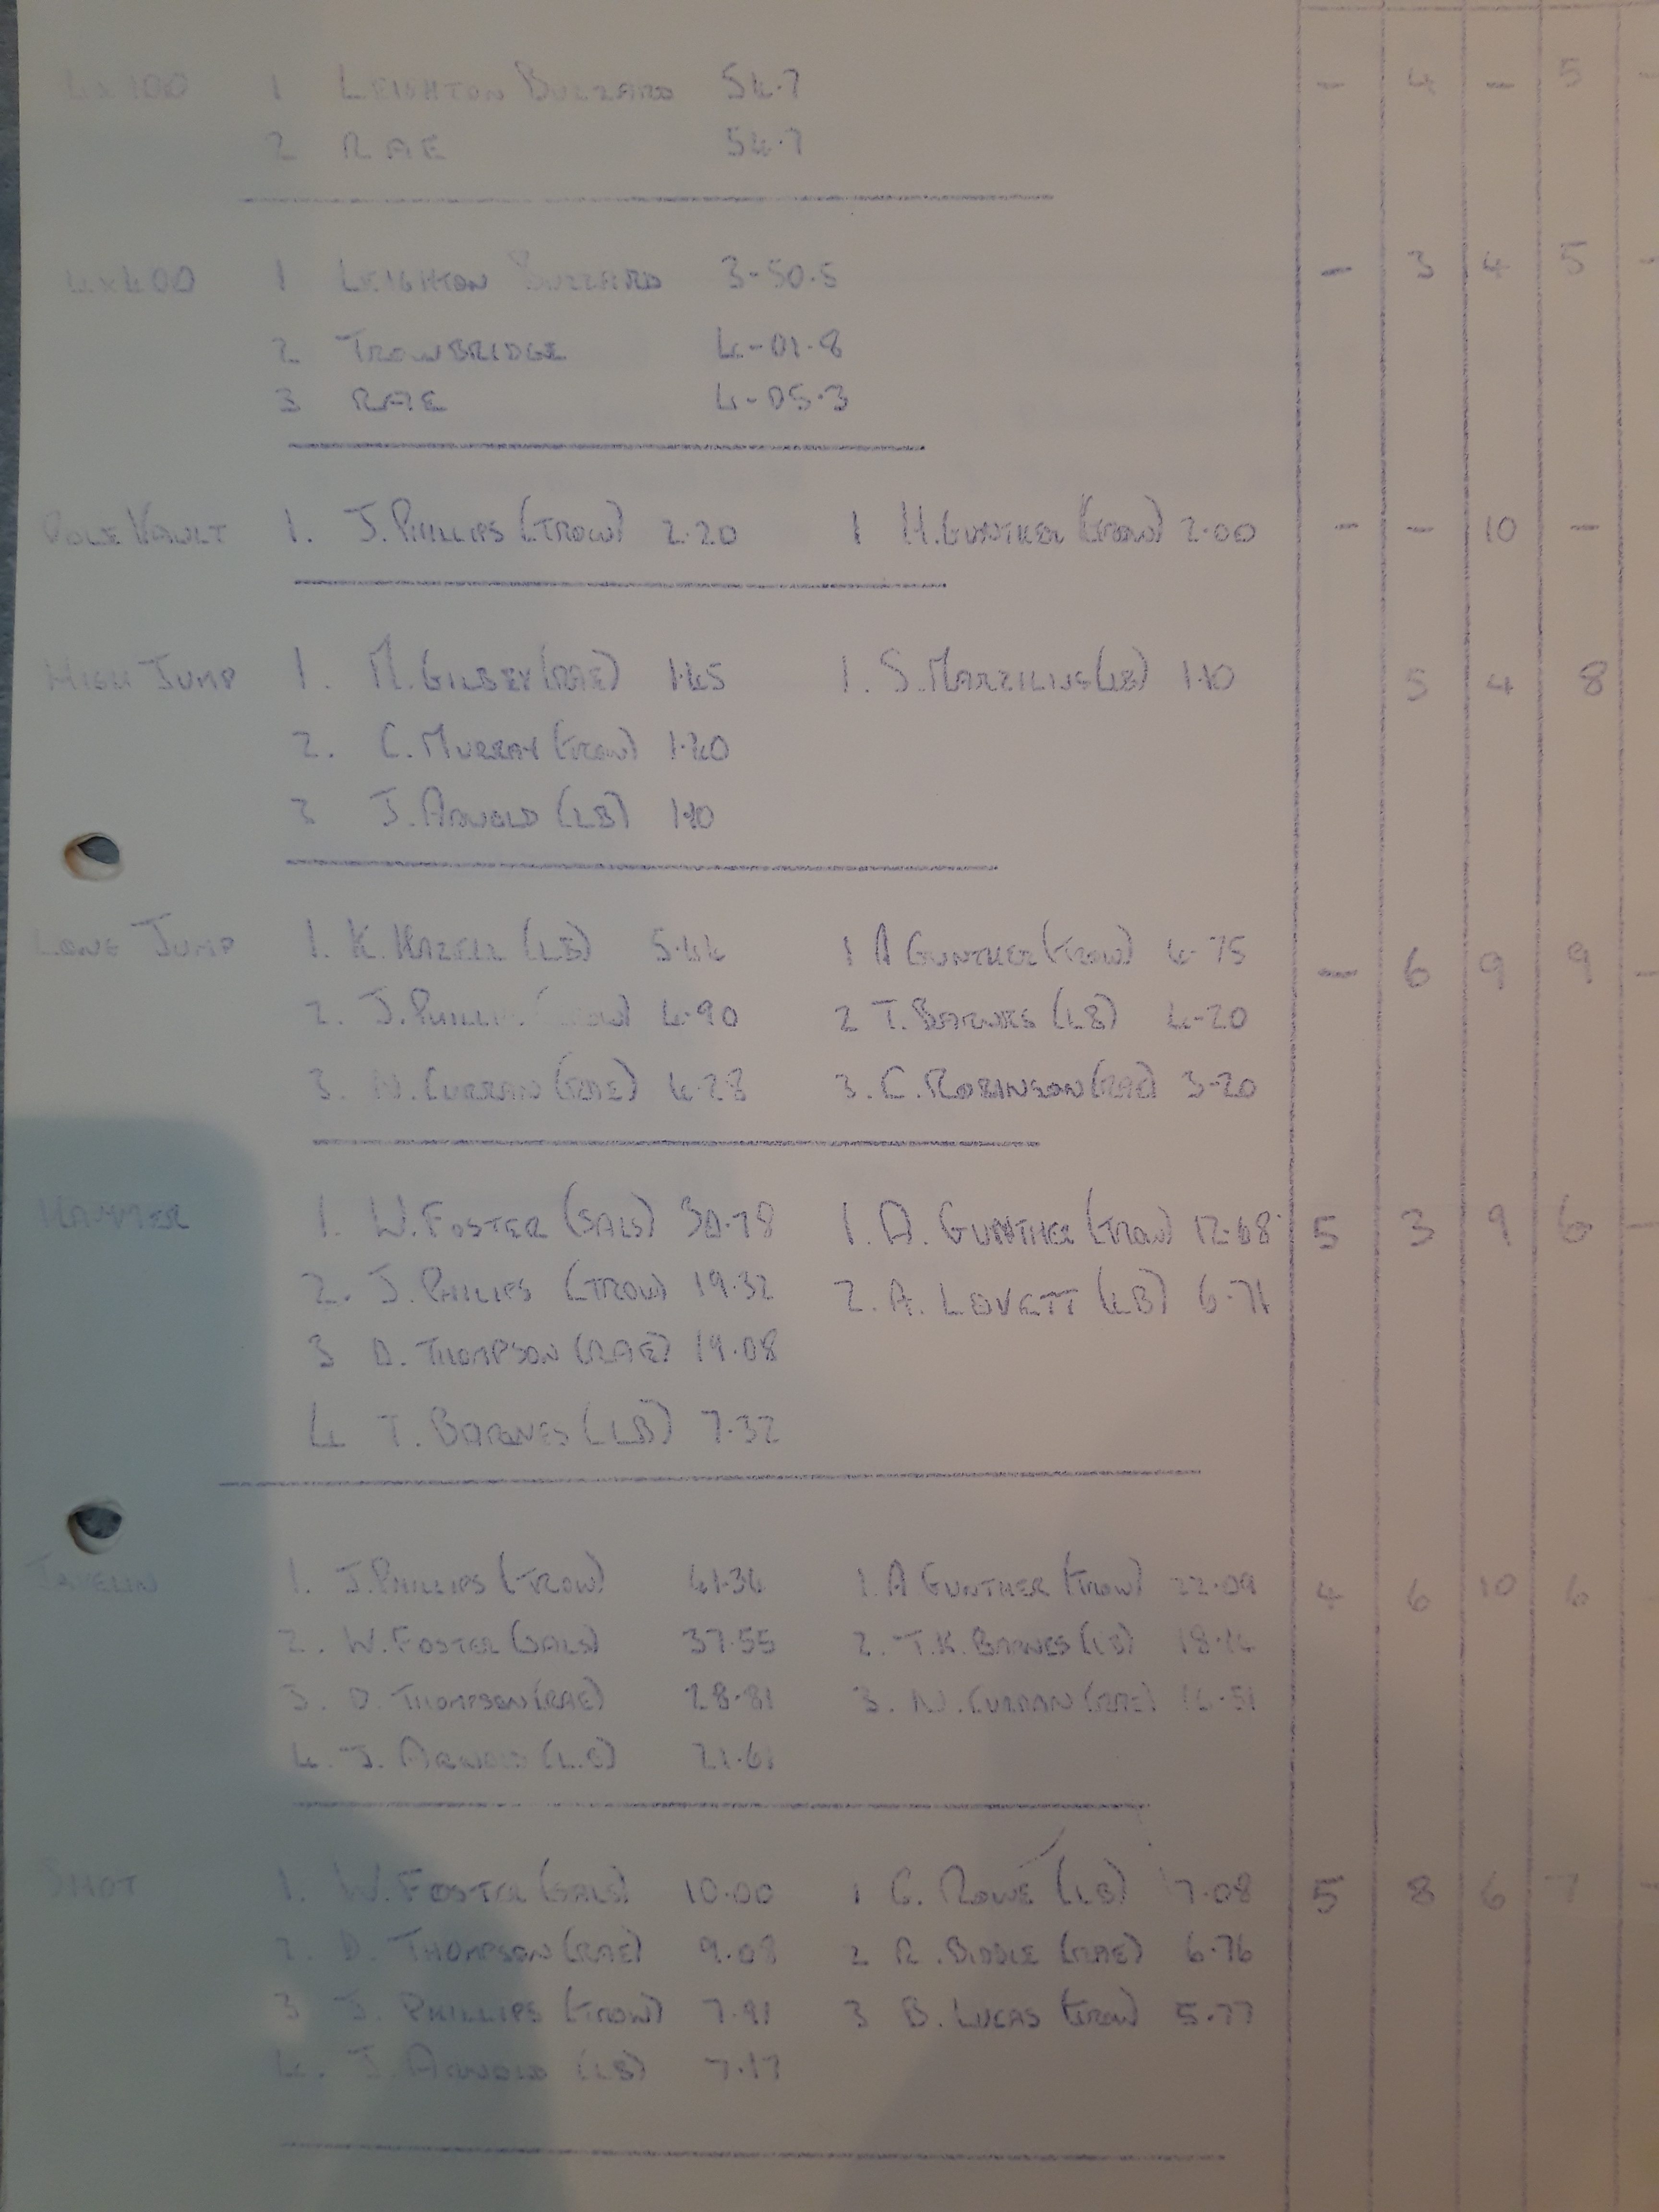 4x100 1 LEIGHTON BUZZARD 54.7 - 4 - 5 -
2 RAE 54.7
4x400 1 LEIGHTON BUZZARD 3-50.5 - 3 4 5 -
2 TROWBRIDGE 4-01.8
3 RAE 4-05.3
POLE VAULT 1. J. PHILLIPS (TROW) 2.20 1 H. GUNTHER (TROW) 2.00 - - 10 -
HIGH JUMP 1. M. GILBEY (RAE) 1.45 1. S. MARZILIUS (LB) 1.10 5 4 8
2. C. MURRAY (TROW) 1.40
3 J. ARNOLD (LB) 1.10
LONG JUMP 1. K. HAZELL (LB) 5.44 1 A GUNTHER (TROW) 4.75 - 6 9 9 -
2. J. PHILLIPS (TROW) 4.90 2 T. BARNES (LB) 4-20
3. N. CURRAN (RAE) 4.28 3. C. ROBINSON (RAE) 3-20
HAMMER 1. W. FOSTER (SALS) 30.78 1. A. GUNTHER (TROW) 12.68 5 3 9 6 -
2. J. PHILIPS (TROW) 19.32 2. A. LOVETT (LB) 6.71
3 D. THOMPSON (RAE) 19.08
4 T. BARNES (LB) 7.32
JAVELIN 1. J. PHILLIPS (TROW) 41.34 1. A GUNTHER (TROW) 22.09 4 6 10 6
2. W. FOSTER (SALS) 37.55 2. T.K. BARNES (LB) 18.14
3. D. THOMPSON (RAE) 28.81 3. N. CURRAN (RAE) 16.51
4. J. ARNOLD (LB) 21.61
SHOT 1. W. FOSTER (SALS) 10.00 1 G. ROWE (LB) 7.08 5 8 6 7 -
2. D. THOMPSON (RAE) 9.08 2 R. BIDDLE (RAE) 6.76
3 J. PHILLIPS (TROW) 7.91 3 B. LUCAS (TROW) 5.77
4. J. ARNOLD (LB) 7.17